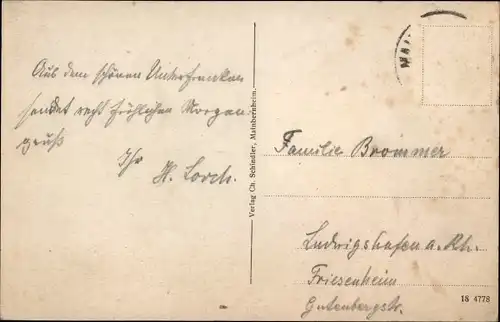 Aus dem schönen Unterfranken
sendet recht fröhlichen Morgen-
gruß
Ihr
H. Lorch.
Verlag Ch. Schindler, Mainbernheim.
Familie Brommer
Ludwigshafen a. Rh.
Friesenheim
Gutenbergstr.
18 4778